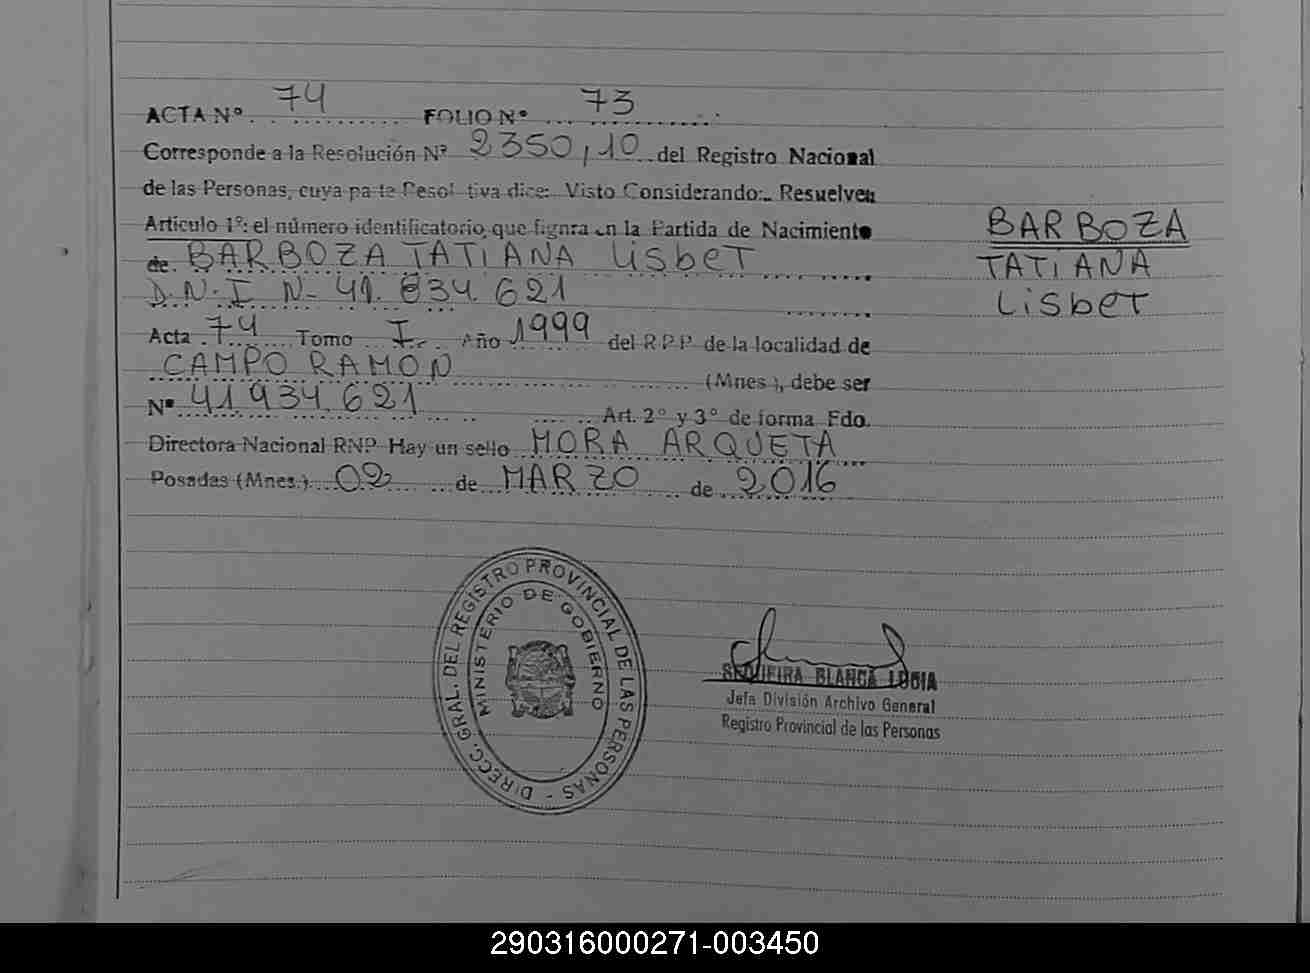 ACTA Nº 74 FOLIO Nº 73
Corresponde a la Resolución Nº 2350,10 del Registro Nacional
de las Personas, cuya pa te Resol tiva dice: Visto Considerando: Resuelven
Artículo 1º: el número identificatorio que figura en la Partida de Nacimiento
de BARBOZA TATIANA LisbeT
D.N.I N- 41. 834.621
Acta 74 Tomo I Año 1999 del R.P.P. de la localidad de
CAMPO RAMON (Mnes.), debe ser
Nº 41.934.621 Art. 2º y 3º de forma Fdo.
Directora Nacional RNP Hay un sello MORA ARQUETA
Posadas (Mnes.) 02 de MARZO de 2016
BARBOZA
TATIANA
LisbeT
DIRECC. GRAL. DEL REGISTRO PROVINCIAL DE LAS PERSONAS -
MINISTERIO DE GOBIERNO
SEQUEIRA BLANCA LUCIA
Jefa División Archivo General
Registro Provincial de las Personas
290316000271-003450